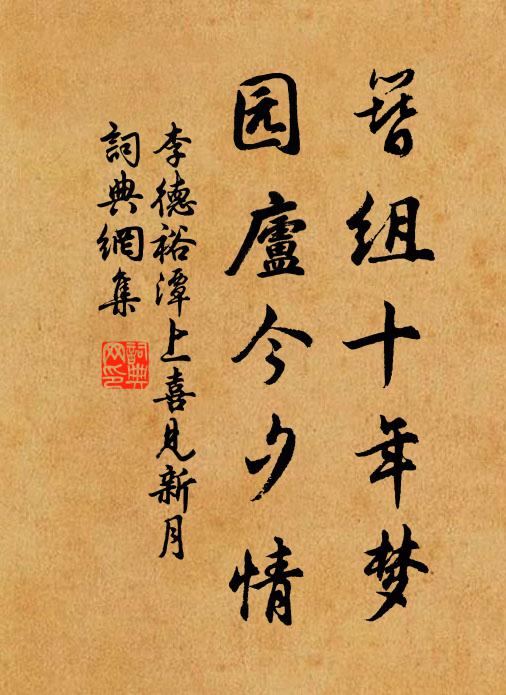 簪组十年梦
园廬今夕情
李德裕潭上喜見新月
詞典網集
詞典网印